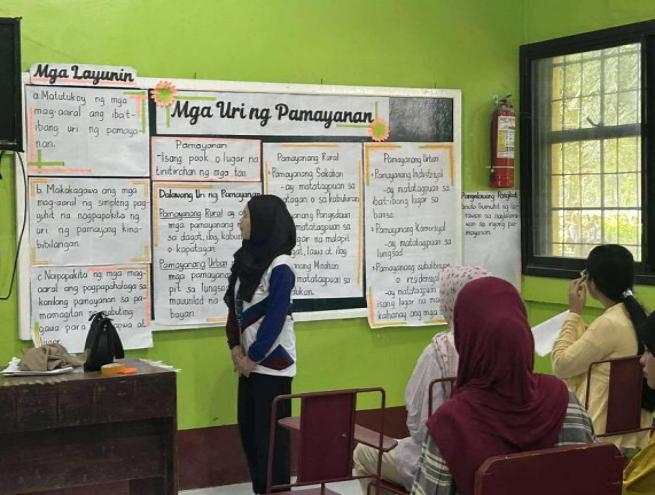 Mga Layunin
a. Matutukoy ng mga
mag-aaral ang ibat-
ibang uri ng pamaya-
nan.
b. Makakagawa ang mga
mag-aaral ng simpleng pag-
guhit na nagpapakita ng
uri ng pamayang kina-
bibilangan.
c. Naipapakita ng mga mag-
aaral ang pagpapahalaga sa
kanilang pamayanan sa pa-
mamagitan ng mabuting
gawa para
Mga Uri ng Pamayanan
Pamayanan
-Isang pook o lugar na
tinitirahan ng mga tao.
Dalawang Uri ng Pamayanan
Pamayanang Rural ay
mga pamayanang
sa dagat, ilog, kabu
o kapatagan
Pamayanang Urban
mga pamayanan
pit sa lungsod
maunlad na
bayan.
Pamayanang Rural
Pamayanang Sakahan
-ay matatagpuan sa
o sa kabukiran
Pamayanang Pangisdaan
matatagpuan sa
lugar na malapit
lawa at ilog
Minahan
matatagpuan sa
Pamayanang Urban
Pamayanang Industriyal
-ay matatagpuan sa
ibat-ibang lugar sa
bansa.
Pamayanang Komersyal
-ay matatagpuan sa
lungsod
Pamayanang subdibisyon
o residensyal
-ay matatagpuan
isang lugar na
kahanay ang mga